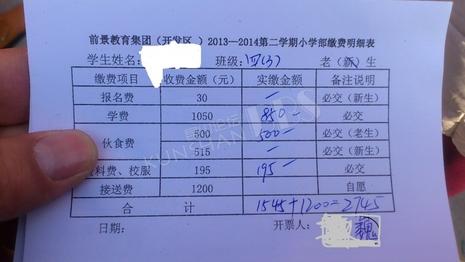 前景教育集团（开发区 ）2013—2014第二学期小学部缴费明细表
学生姓名: 班级: 四(3) 老（新）生
缴费项目 收费金额（元） 实缴金额 备注说明
报名费 30 — 必交（新生）
学费 1050 850 — 必交
伙食费 500 500 — 必交（老生）
515 — 必交（新生）
资料费、校服 195 195 — 必交
接送费 1200 自愿
合 计 1545+1200=2745
日期: 开票人: 魏
KUNSHAN BBS